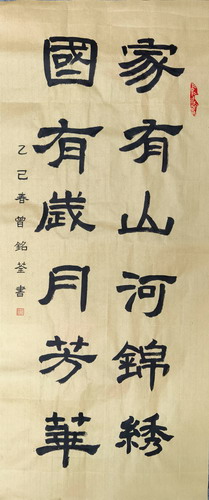 家有山河錦綉
國有歲月芳華
乙巳春曾銘荃書